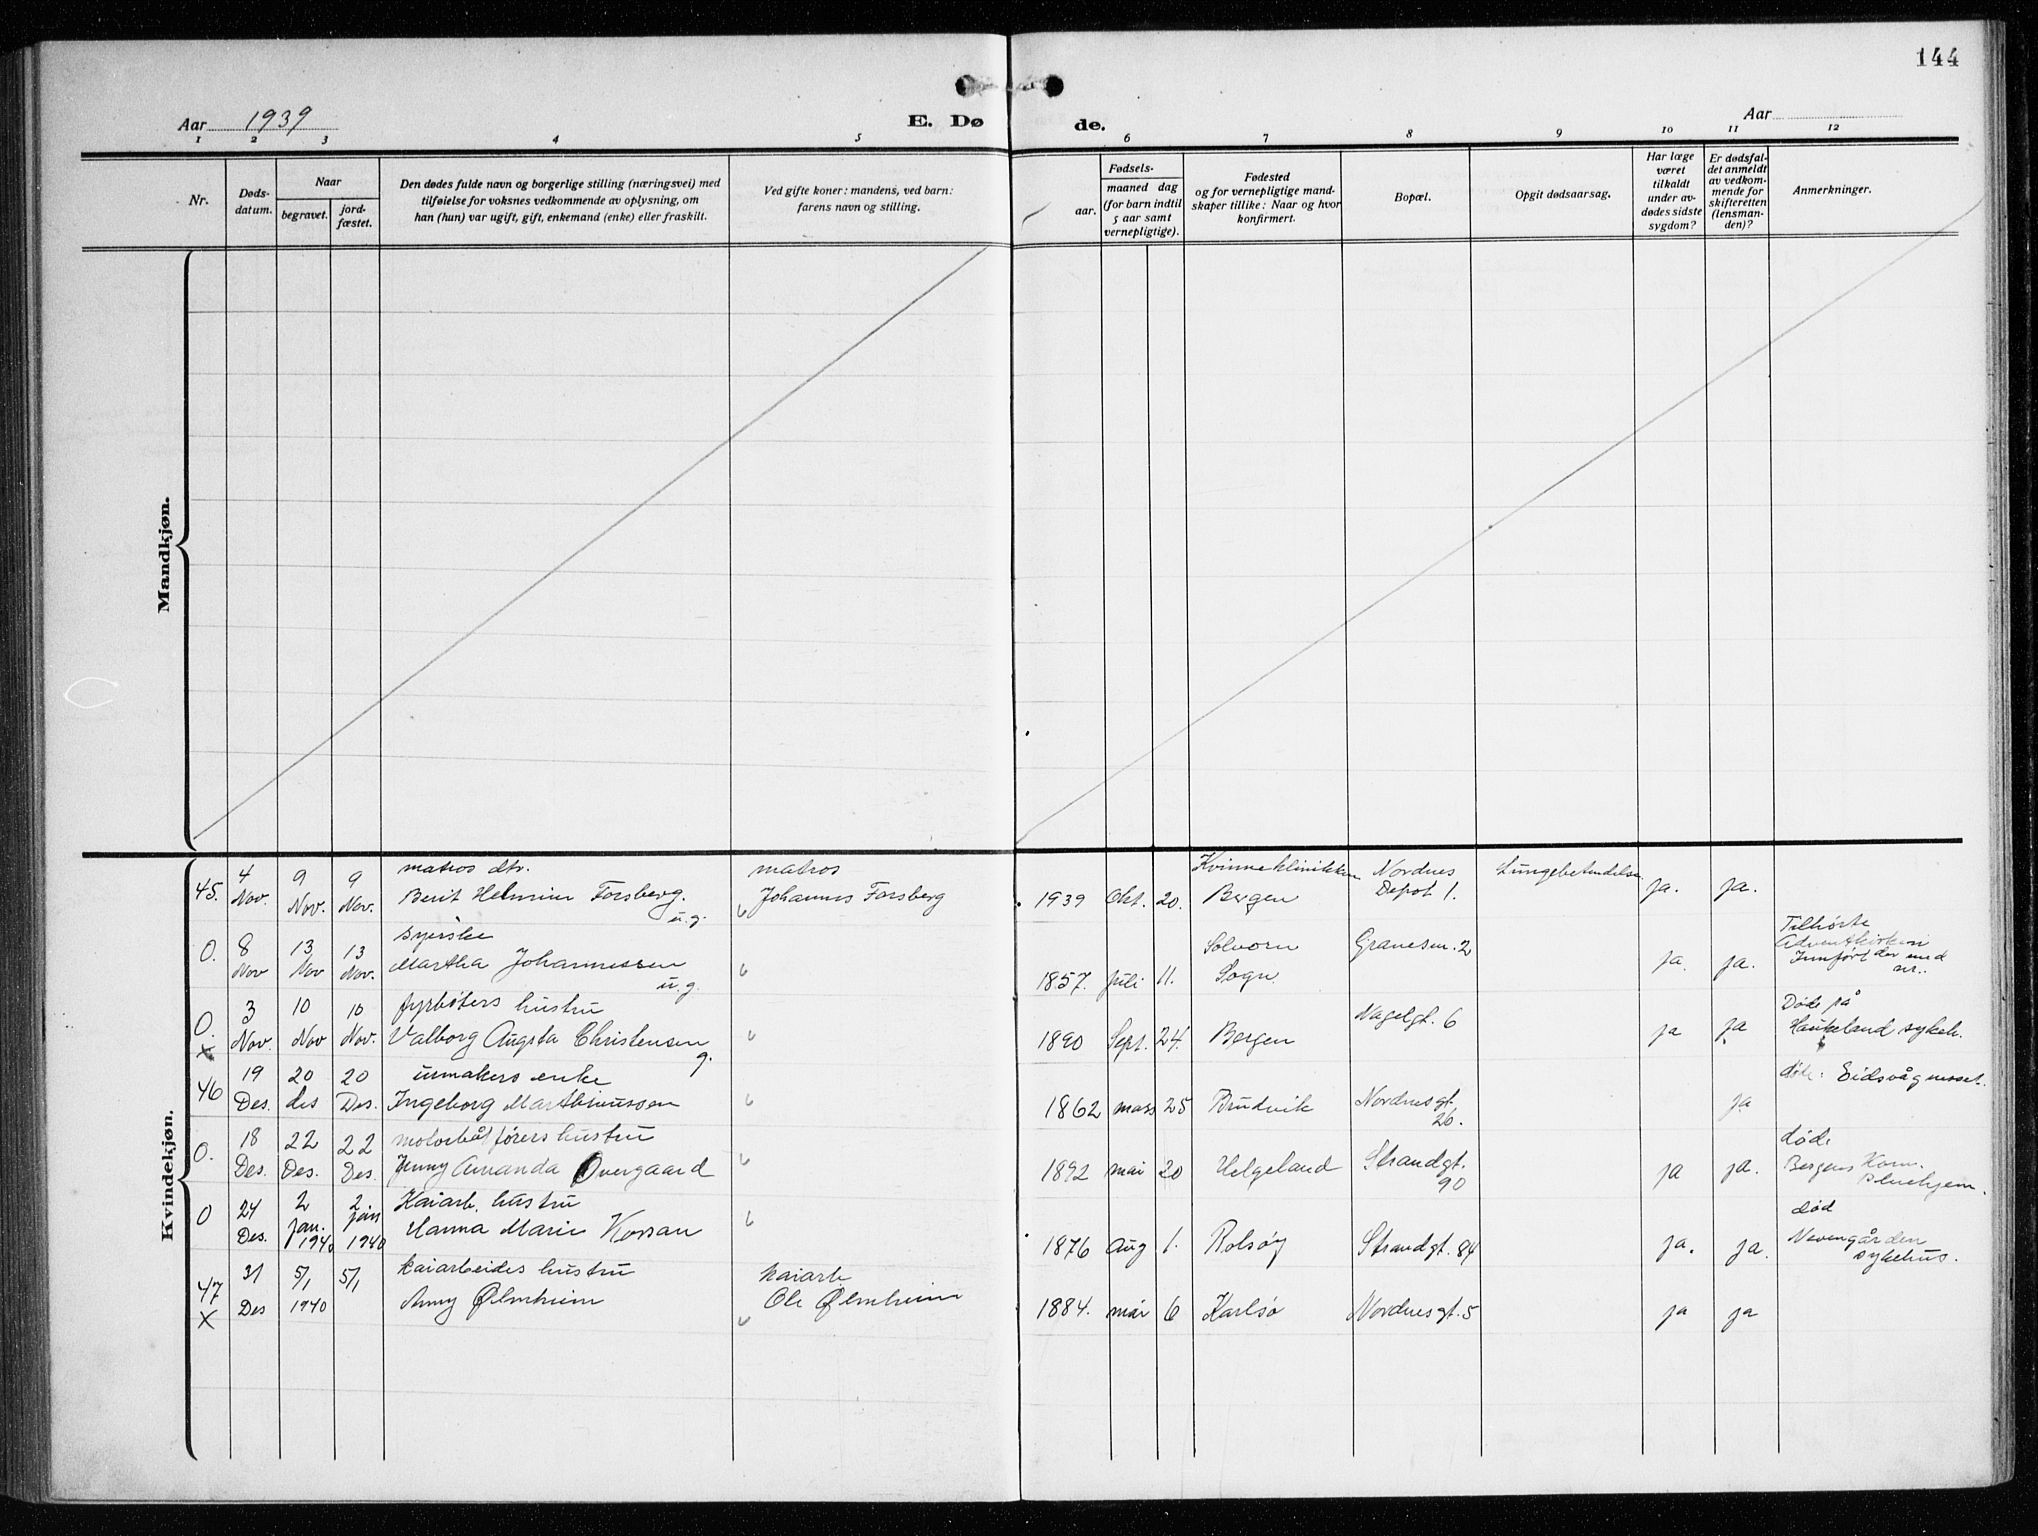 144
Aar 1939
E. Dø de.
Aar
1 2 3 4 5 6 7 8 9 10 11 12
Nr.
Døds-
datum.
Naar
begravet.
jord-
fæstet.
Den dødes fulde navn og borgerlige stilling (næringsvei) med
tilføielse for voksnes vedkommende av oplysning, om
han (hun) var ugift, gift, enkemand (enke) eller fraskilt.
Ved gifte koner: mandens, ved barn:
farens navn og stilling.
Fødsels-
aar.
maaned dag
(for barn indtil
5 aar samt
vernepligtige).
Fødested
og for vernepligtige mand-
skaper tillike: Naar og hvor
konfirmert.
Bopæl.
Opgit dødsaarsag.
Har læge
været
tilkaldt
under av-
dødes sidste
sygdom?
Er dødsfal-
det anmeldt
av vedkom-
mende for
skifteretten
(lensman-
den)?
Anmerkninger.
Mandkjøn.
Kvindekjøn.
4 9 9 matros dtr. matros Kvinneklinikken Nordnes Lungebetendelse
45. Nov. Nov. Nov. Berit Helmine Forsberg. Johannes Forsberg 1939 Okt. 20. Bergen Depot 1. ja. ja.
u.g.
8 13 13 syerske Solvorn Granesm. 2 Tilhørte
0. Nov Nov Nov. Martha Johannessen 1857. juli 11. Sogn. ja. ja. Adventkirken
u.g. Innført der med
nr..
3 10 10 fyrbøters hustru Nagelgt. 6 Døde på
0. Nov. Nov Nov. Valborg Augsta Christensen 1890 Sept. 24. Bergen ja ja Haukeland sykeh.
x g.
19 20 20 urmakers enke Nordnesgt. døde: Eidsvågnesset.
46 Des. des Des. Ingeborg Marthinussen 1862 mars 25 Brudvik 26. ja
18 22 22 motorbåtførers hustru Strandgt. døde
0. Des. Des. Des. Jenny Amanda Overgaard 1892 mai 20 Helgeland 90 ja ja. Bergens Kom.
Pleiehjem.
24 2 2 Kaiarb. hustru død
0 Des. jan. 1940 jan 1940 Hanna Marie Korsan 1876 Aug 1. Rolsøy Strandgt. 84 ja. ja. Nevengården
sykehus.
31 5/1 5/1 kaiarbeides hustru kaiarb.
47 Des 1940 Anny Ølmheim Ole Ølmheim 1884. mai 6 Karlsø Nordnesgt. 5 ja ja
x